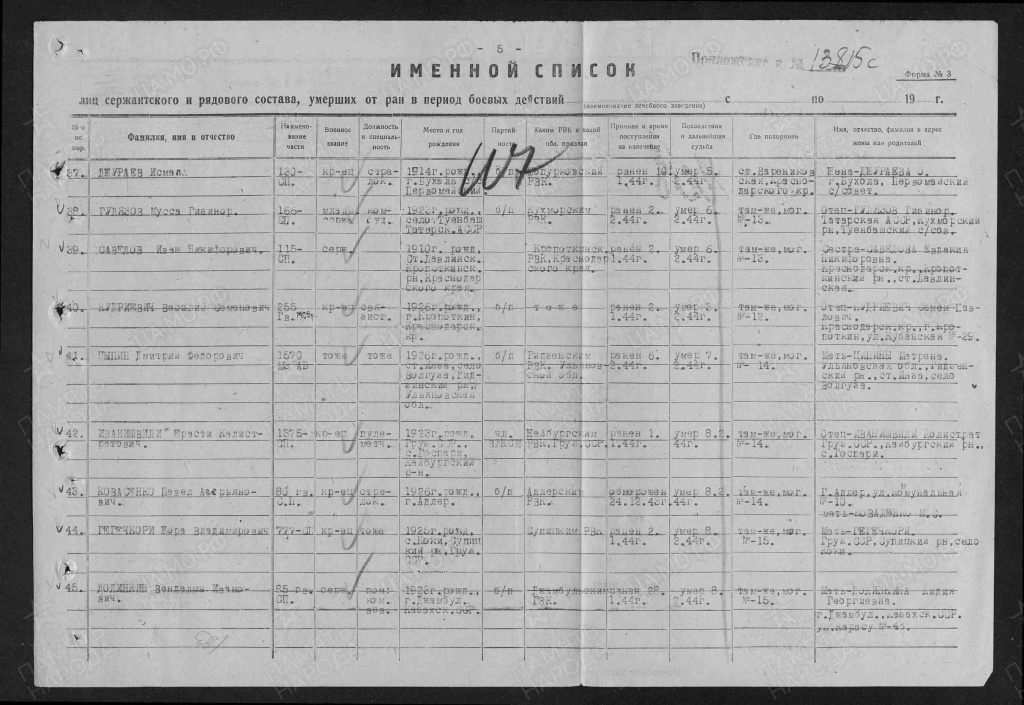 - 5 -
Приложение к № 13815с
ИМЕННОЙ СПИСОК
Форма № 3
лиц сержантского и рядового состава, умерших от ран в период боевых действий с по 19 г.
(наименование лечебного заведения)
№№ по пор. Фамилия, имя и отчество Наименование части Военное звание Должность и специальность Место и год рождения Партийность Каким РВК и какой обл. призван Причина и время поступления на излечение Последствия и дальнейшая судьба Где похоронен Имя, отчество, фамилия и адрес жены или родителей
117
37. ДЖУРАЕВ Исмаил 130- кр-ец стре- 1914г.рожд. б/п ранен 10. умер 5. ст.Вареников Жена-ДЖУРАЕВА О.
СП. лок. г.Бухара РВК. 1.44г. 2.44г. ская,красно- г.Бухора, Первомайский
Первомайский. дарского кр. с/совет.
38. ГУЛЯЗОВ Мусса Гизинор. 166- младш ком- 1923г.рожд. б/п Кухморским ранен 2. умер 6. там-же,мог. Отец-ГУЛЯЗОВ Гизинор.
СП. серж. отд. село,Туенбаш РВК. 1.44г. 2.44г. №-13. Татарская АССР,Кухморский
Татарск.АССР рн,Туенбашский с/сов.
39. САВЕЛОВ Иван Никифорович. 115- серж. 1910г. рожд. Кропоткинск. ранен 2. умер 6. там-же,мог. Сестра-САВЕЛОВА Евдакия
СП. Ст.Давлинск. РВК,Краснодар 1.44г. 2.44г. №-13. Никифоровна.
Кропоткинск. ского края. Краснодарск.кр.,Кропот-
рн,Краснодар кинский рн.,ст.Давлин-
ского края. ская.
40. КУДРИЕВИЧ Василий Семенович 255 кр-ец свя- 1926г.рожд. б/п т о ж е ранен 2. умер 3. там-же,мог. Отец-КУДРИЕВИЧ Семен Пав-
Гв. зист. г.Кропоткин, 1.44г. 2.44г. №-12. лович.
Краснодарск. Краснодарск.кр.,г.Кро-
кр. поткин,ул.Кубанская №-29.
41. ЦЫПИН Дмитрий Федорович 1570 тоже тоже 1926г.рожд., б/п ранен 6. умер 7. там-же,мог. Мать-ЦЫПИНА Матрена.
ст.Няза,село РВК. Ульянов- 2.44г. 2.44г. №- 14. Ульяновская обл.,
Волгуза, ской обл. ский рн.,ст.Няза,село
Ульяновская Волгуза.
обл.
42. ИВАНИШВИЛИ Ерасти Калист- 1375- кр-ец пуле- 1923г.рожд. чл. ранен 1. умер 8.2. там-же,мог. Отец-ИВАНИШВИЛИ Колистрат
ратович. СП. метч. Груз.ССР., ВЛКСМ РВК,Груз.ССР. 2.44г. 44г. №-14. Груз.ССР,Кайбургский рн.,
с.Госпари, с.Госпари.
Кайбургский
р-н.
43. КОВАСЕНКО Павел Аверьяно- 83 гв. кр-ец стре- 1926г.рожд., б/п Адлерским обморожен умер 8.2. там-же,мог. г.Адлер,ул.Комунальная
вич. С.П. лок. г.Адлер. РВК. 24.12.43г. 44г. №-14. №-10.
мать-КОВАЛЕНКО М.С.
44. ГЕГЕЧКОРИ Жора Владимирович 777-СП кр-ец тоже 1925г.рожд, Супицким РВК ранен 2. умер 8. там-же,мог. Мать-ГЕГЕЧКОРИ.
с.Коки,Супиц 1.44г. 2.44г. №-15. Груз.ССР,Супицкий рн,село
кий рн,Груз. Коки.
ССР.
45. ДОЛИНКИН Вендалин Ивано- 85 гв. серж. пом- 1923г.рожд, б/п Джамбульским ранен 28. умер 8. там-же,мог. Мать-ДОЛИНКИНА Лидия
вич. СП. ком. г.Джамбул. РВК. 1.44г. 2.44г. №-15. Георгиевна.
взв. Казахск.ССР. г.Джамбул.,Казахск.ССР.
ул.Карасу №-45.